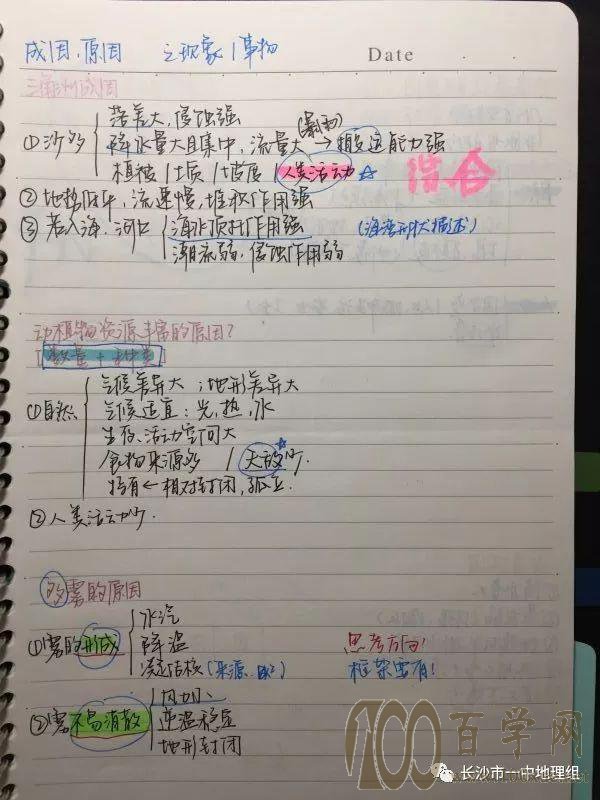 成因、原因 之现象/事物
Date
三角洲成因
落差大,侵蚀强
①沙多 降水量大且集中,流量大(暴雨)→搬运能力强
植被/土质/坡度/人类活动☆
结合
②地势低平,流速慢,堆积作用强
③若入海,河口 海水顶托作用强 (海湾形状描述)
潮流弱,侵蚀作用弱
动植物资源丰富的原因?
[数量+种类]
气候差异大;地形差异大
①自然 气候适宜:光,热,水
生存、活动空间大
食物来源多/天敌少.
特有←相对封闭,孤立.
②人类活动少.
多雾的原因
水汽
①雾的形成 降温 思考方向!
凝结核(来源、 ) 框架要有!
②雾不易消散 风力小
逆温稳定
地形封闭
100百学网
长沙市一中地理组